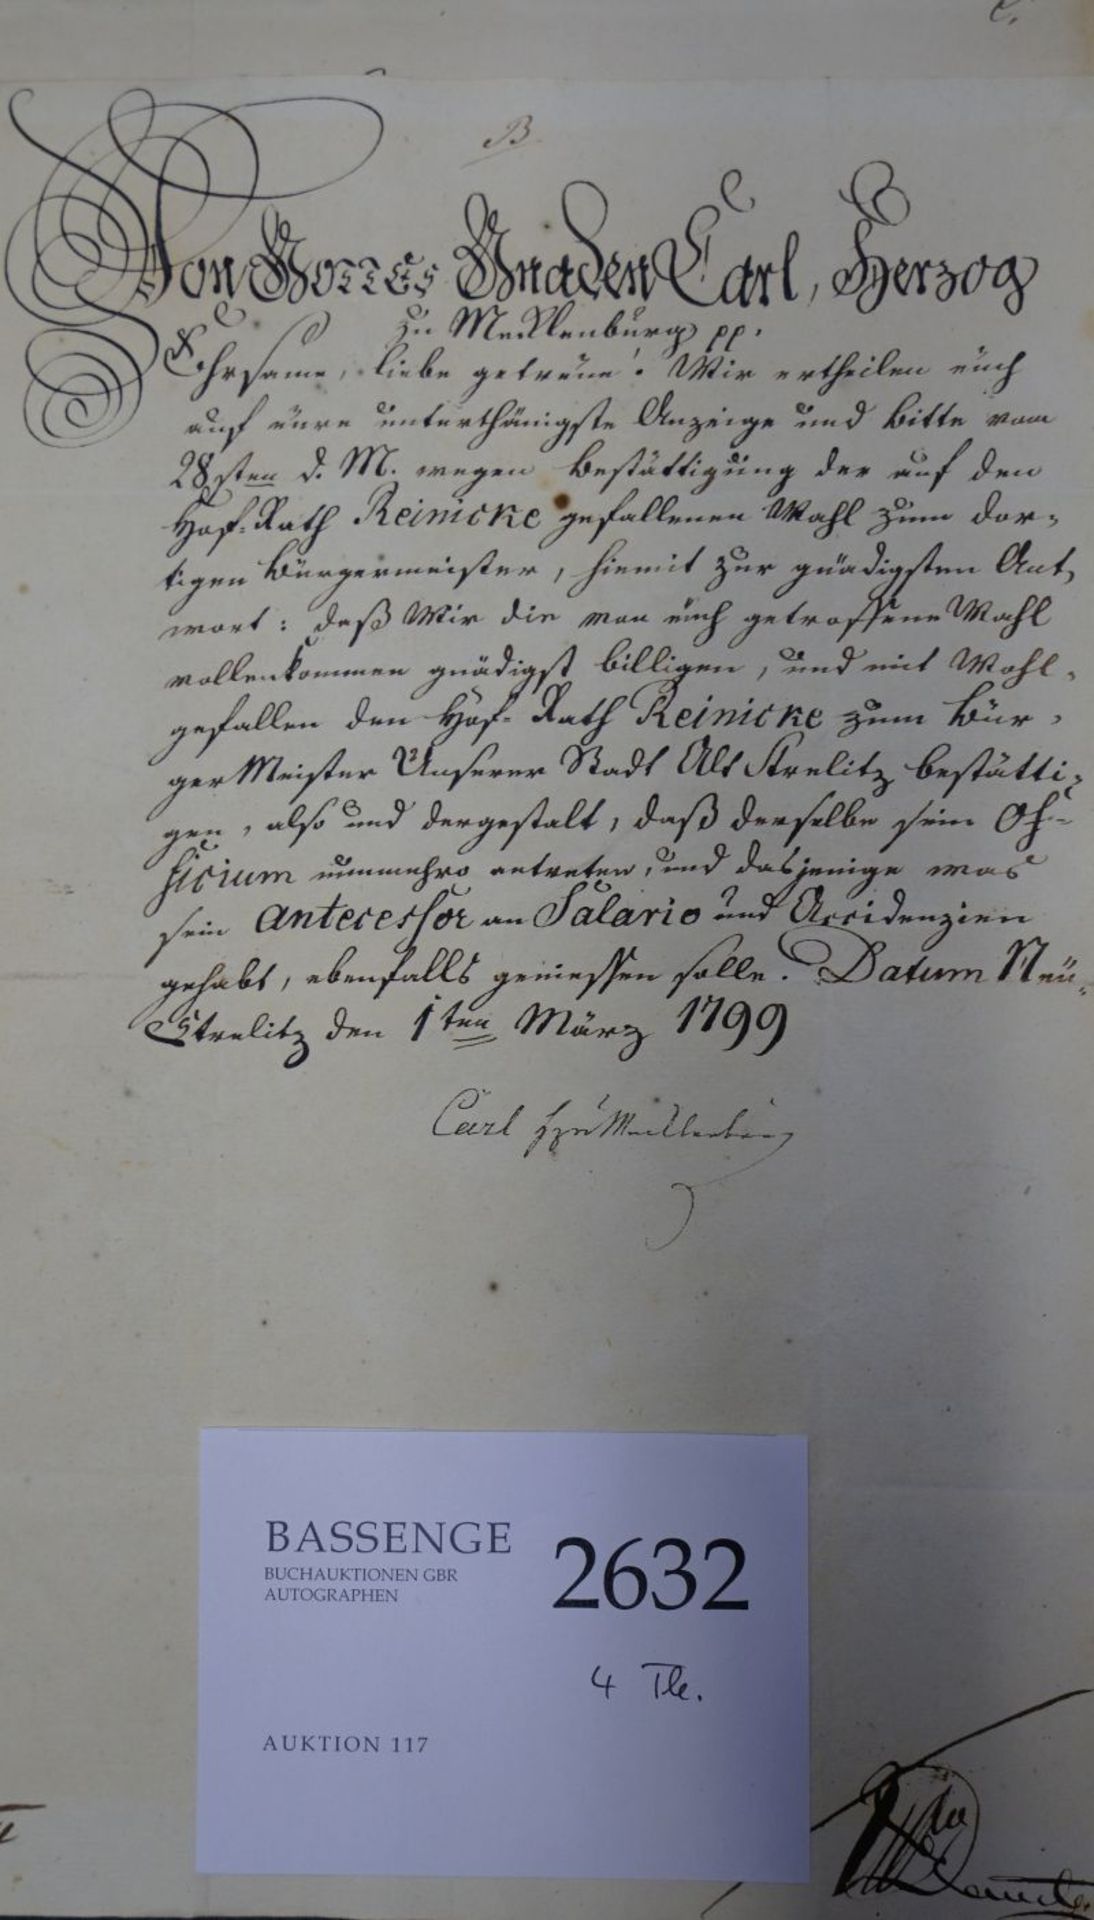 B
Von Gottes Gnaden Carl, Herzog
zu Mecklenburg pp.
Ehrsame, liebe getreue! Wir ertheilen euch
auf eure unterthänigste Anzeige und Bitte vom
28sten d. M. wegen Bestättigung der auf den
Hof-Rath Reinicke gefallenen Wahl zum dor-
tigen Bürgermeister, hiemit zur gnädigsten Ant-
wort: daß Wir die von euch getroffene Wahl
vollenkommen gnädigst billigen, und mit Wohl-
gefallen den Hof-Rath Reinicke zum Bür-
ger Meister Unserer Stadt Alt Strelitz bestätti-
gen, also und dergestalt, daß derselbe sein Of-
ficium nunmehro antreten, und dasjenige was
sein Antecessor an Salario und Accidenzien
gehabt, ebenfalls geniessen solle. Datum Neu-
Strelitz den 1ten März 1799
Carl HzuMecklenburg
BASSENGE
BUCHAUKTIONEN GBR
AUTOGRAPHEN
2632
4 Tle.
AUKTION 117